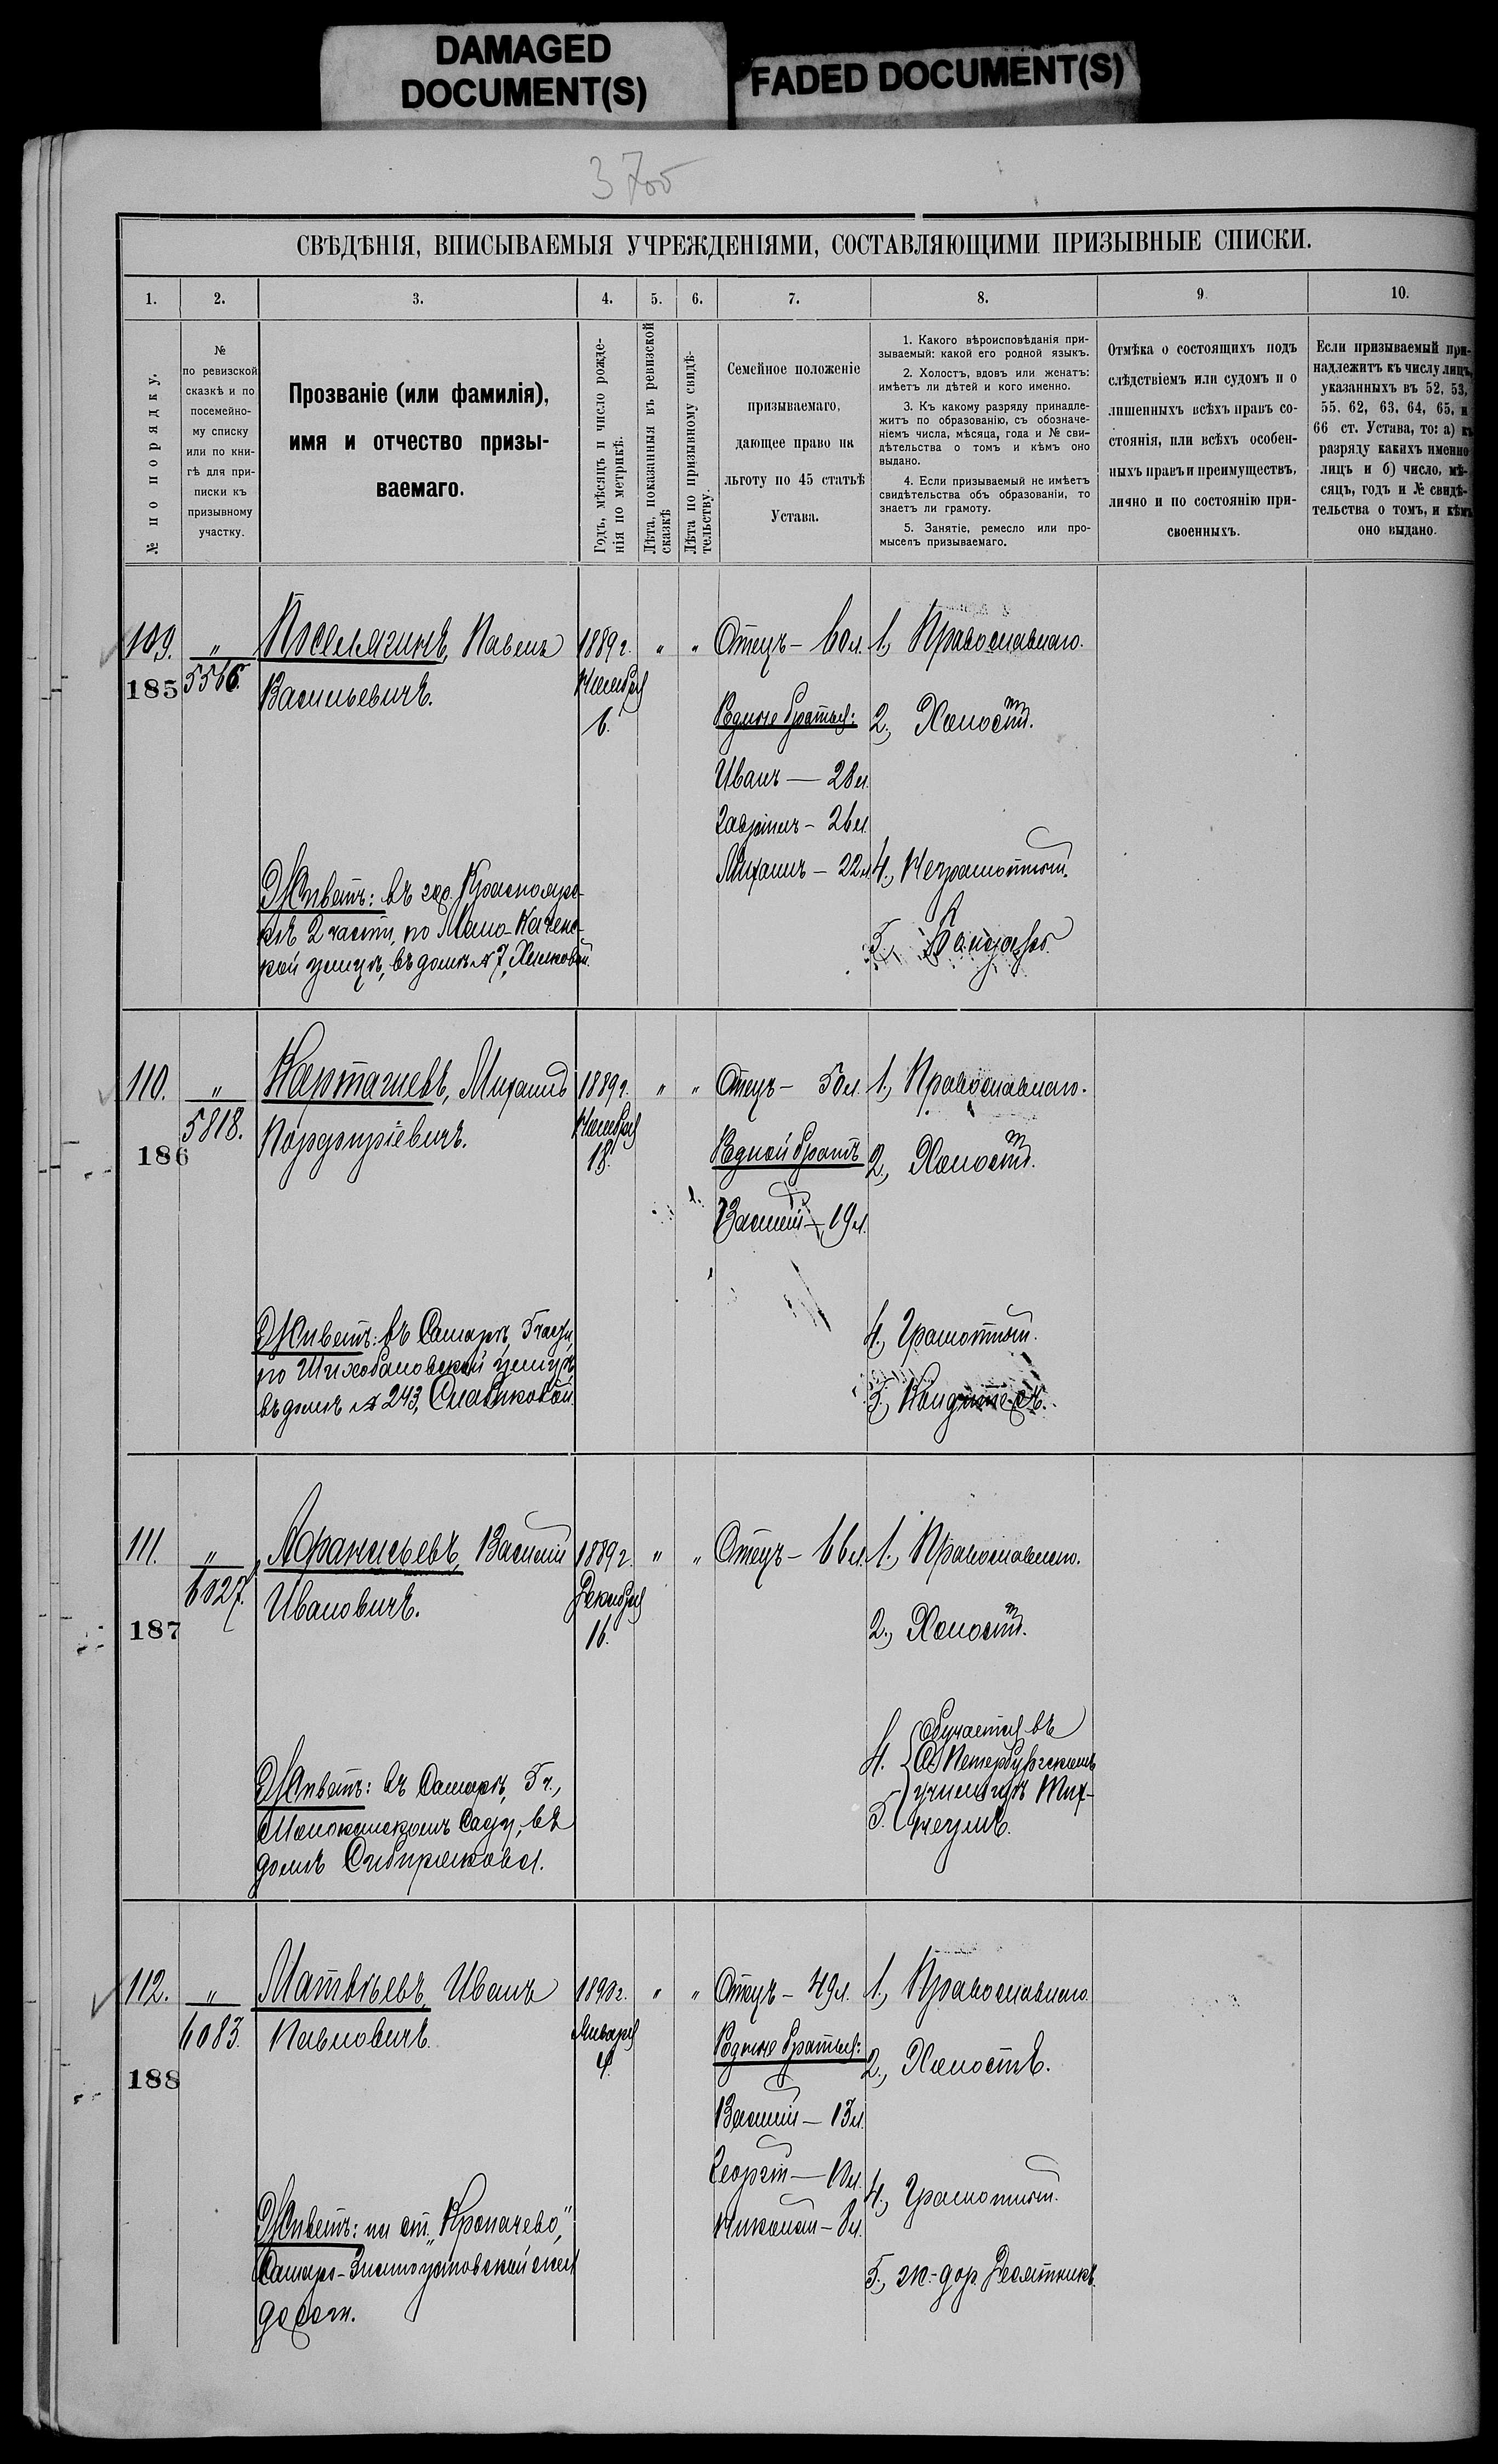 DAMAGED
DOCUMENT(S)
FADED DOCUMENT(S)
3700
СВѢДѢНІЯ, ВПИСЫВАЕМЫЯ УЧРЕЖДЕНІЯМИ, СОСТАВЛЯЮЩИМИ ПРИЗЫВНЫЕ СПИСКИ.
1. 2. 3. 4. 5. 6. 7. 8. 9. 10.
№ по порядку.
№
по ревизской
сказкѣ и по
посемейно-
му списку
или по кни-
гѣ для при-
писки къ
призывному
участку.
Прозваніе (или фамилія),
имя и отчество призы-
ваемаго.
Годъ, мѣсяцъ и число рожде-
нія по метрикѣ.
Лѣта, показанныя въ ревизской
сказкѣ
Лѣта по призывному свидѣ-
тельству.
Семейное положеніе
призываемаго,
дающее право на
льготу по 45 статьѣ
Устава.
1. Какого вѣроисповѣданія при-
зываемый: какой его родной языкъ.
2. Холостъ, вдовъ или женатъ:
имѣетъ ли дѣтей и кого именно.
3. Къ какому разряду принадле-
житъ по образованію, съ обозначе-
ніемъ числа, мѣсяца, года и № сви-
дѣтельства о томъ и кѣмъ оно
выдано.
4. Если призываемый не имѣетъ
свидѣтельства объ образованіи, то
знаетъ ли грамоту.
5. Занятіе, ремесло или про-
мыселъ призываемаго.
Отмѣка о состоящихъ подъ
слѣдствіемъ или судомъ и о
лишенныхъ всѣхъ правъ со-
стоянія, или всѣхъ особен-
ныхъ правъ и преимуществъ,
лично и по состоянію при-
своенныхъ.
Если призываемый при-
надлежитъ къ числу лицъ,
указанныхъ въ 52, 53,
55, 62, 63, 64, 65, и
66 ст. Устава, то: а) къ
разряду какихъ именно
лицъ и б) число, мѣ-
сяцъ, годъ и № свидѣ-
тельства о томъ, и кѣмъ
оно выдано.
109.
185
"
5566.
Поселягинъ, Павелъ
Васильевичъ.
Живетъ: въ гор. Краснояр-
скѣ 2 части, по Мало-Качен-
ской улицѣ, въ домѣ № 7,
1889 г.
Ноября
6.
" "
Отецъ – 60 л.
Родные братья:
Иванъ — 28 л.
Гавріилъ – 26 л.
Михаилъ – 22 л.
1., Православнаго.
2., Холостъ.
4., Неграмотный.
5.,
110.
186
"
5818.
Карташевъ, Михаилъ
Порфиріевичъ.
Живетъ: въ Самарѣ, 5 части,
по Шихобаловской улицѣ
въ домѣ № 243, Славиковой.
1889 г.
Ноября
18.
" "
Отецъ – 50 л.
Родной братъ
Василій – 19 л.
1., Православнаго.
2., Холостъ.
4., Грамотный.
5., Кондитеръ.
111.
187
"
6027.
Афанасьевъ, Василій
Ивановичъ.
Живетъ: въ Самарѣ, 5 ч.,
Молоканскомъ Саду, въ
домѣ Сибирякова.
1889 г.
Декабря
16.
" "
Отецъ – 66 л.
1., Православнаго.
2., Холостъ.
4.
5.
Обучается въ
С. Петербургскомъ
училищѣ
112.
188
"
6083.
Матвѣевъ, Иванъ
Павловичъ.
Живетъ: на ст. „Кропачево",
Самаро-Златоустовской жел.
дороги.
1890 г.
Января
4.
" "
Отецъ – 49 л.
Родные братья:
Василій – 13 л.
Георгій — 10 л.
Николай – 8 л.
1., Православнаго.
2., Холостъ.
4., Грамотный.
5., ж.-дор. Десятникъ.